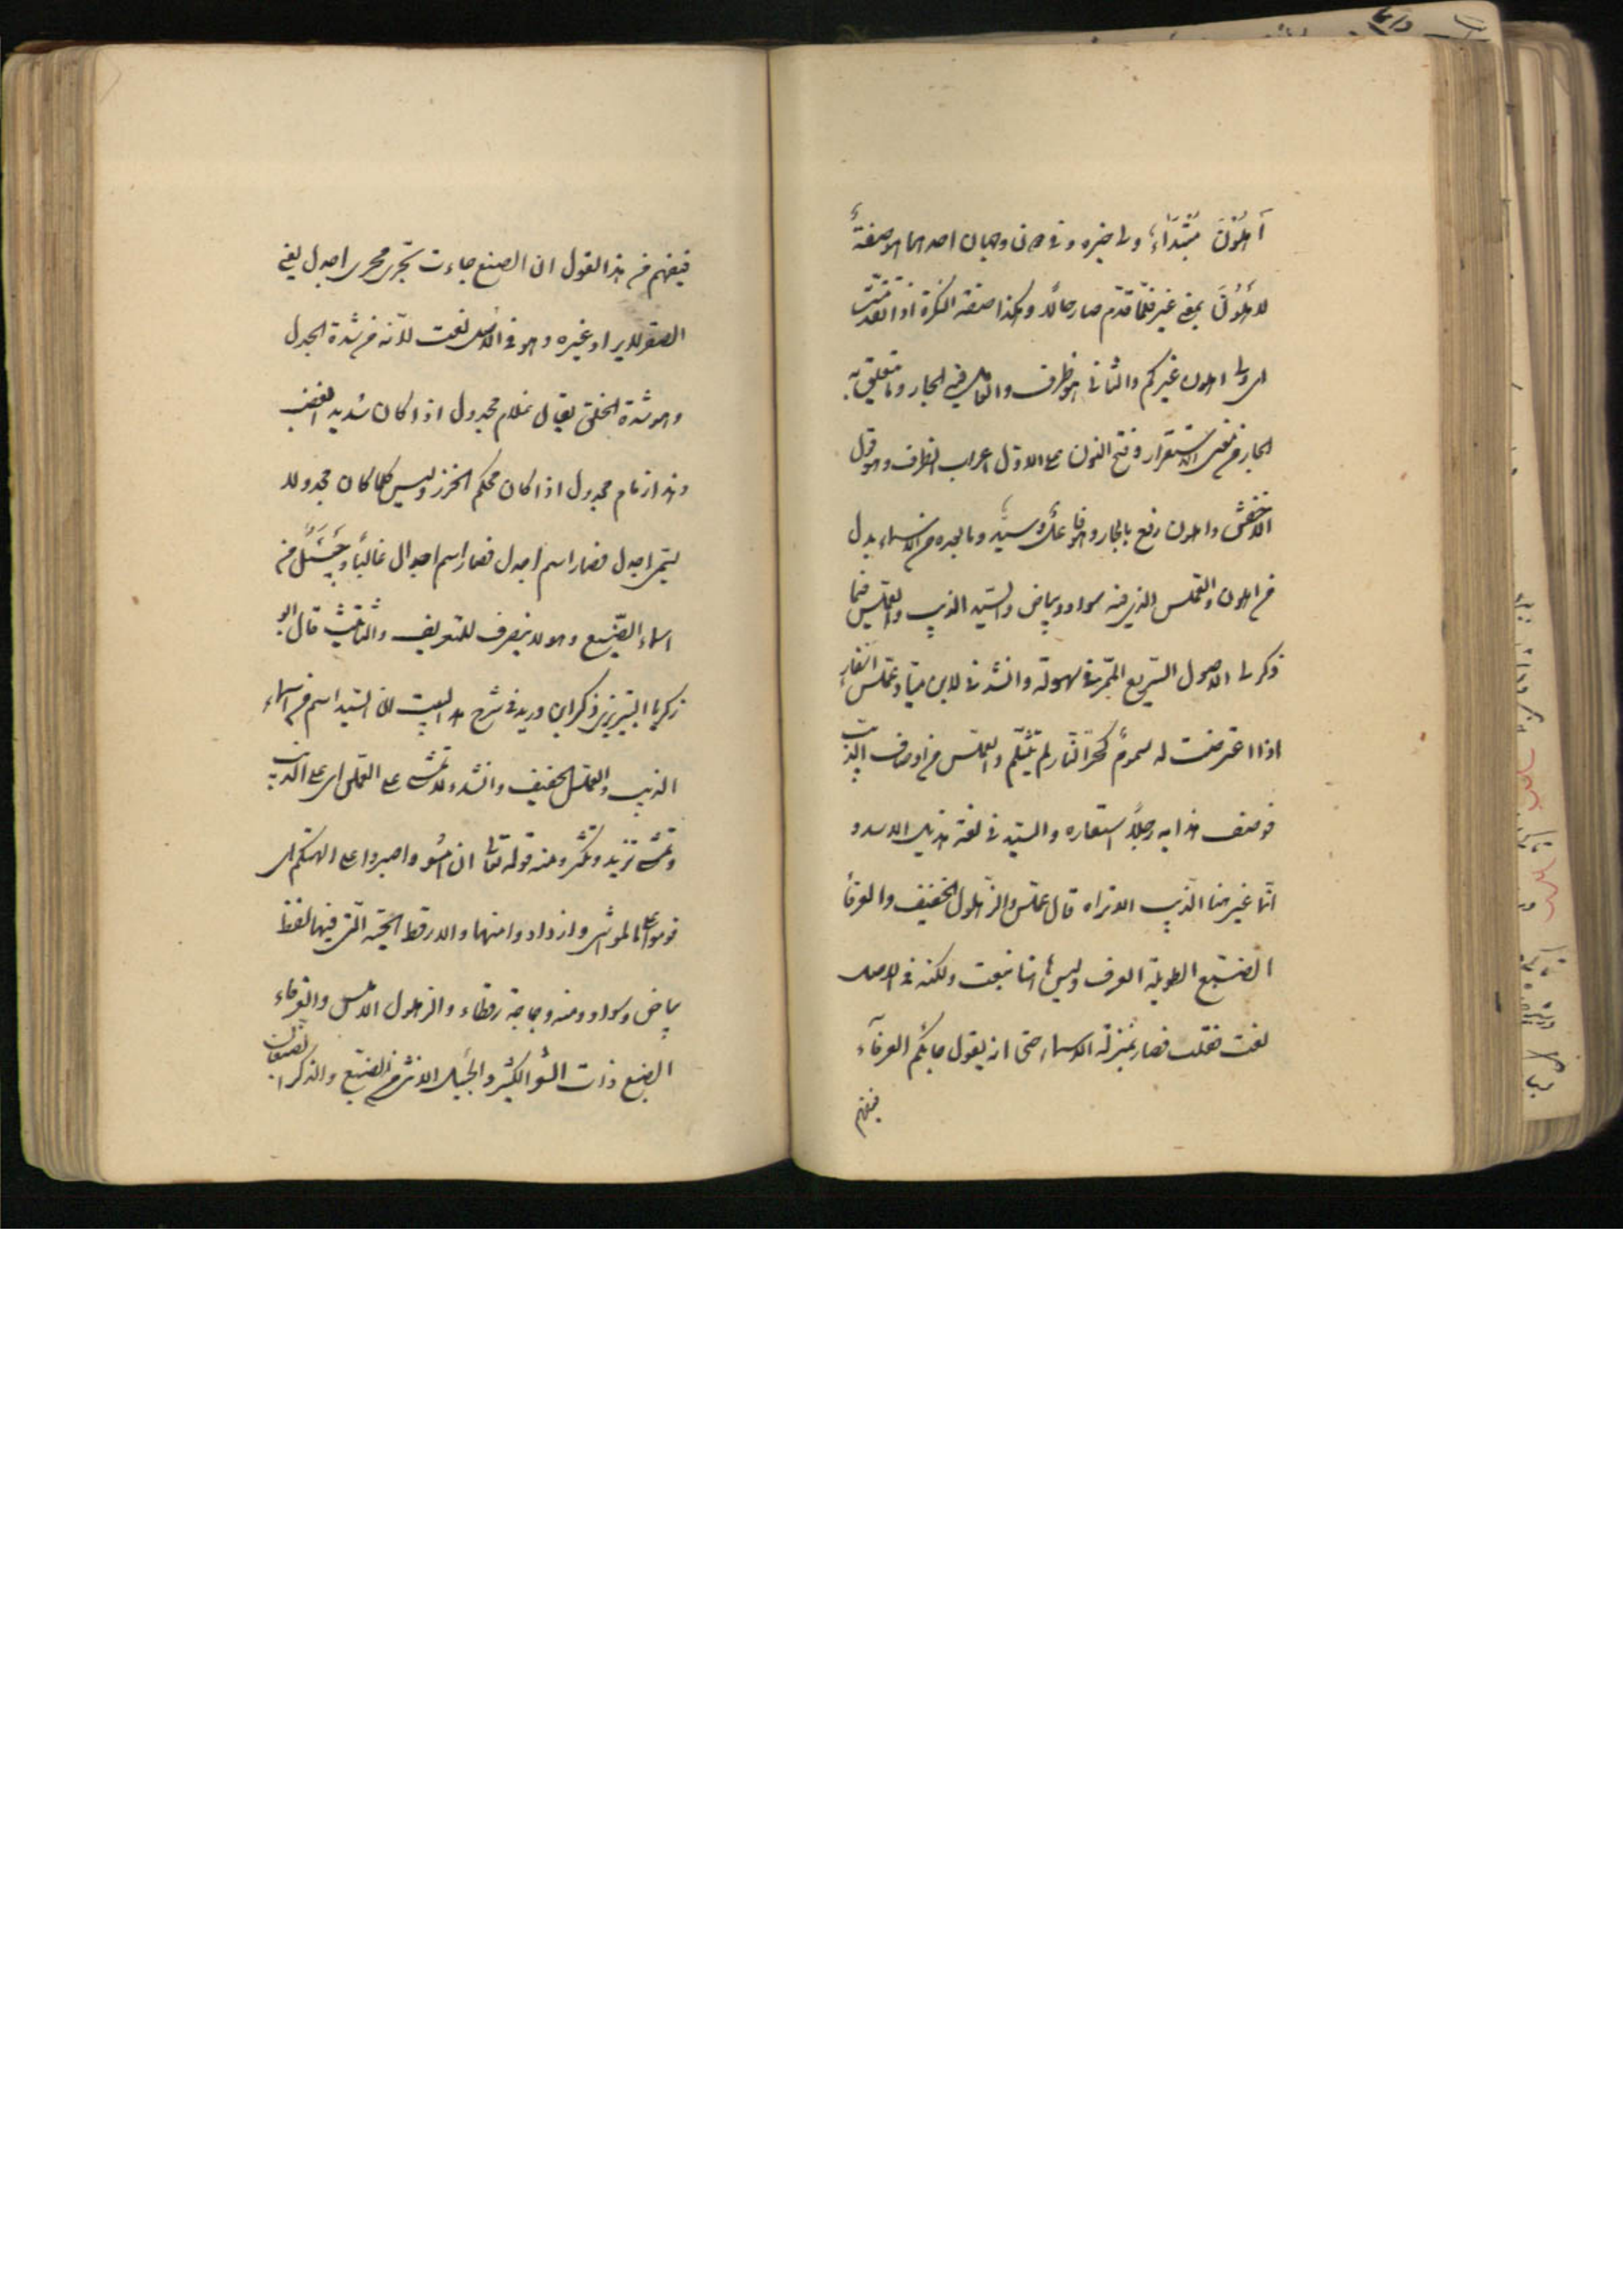 أهلون مبتداء، ولى خبره وفى دونكم وجهان احدهما هو صفة
لاهلون بمعنى غير فلمّا قدّم صار حالا وهكذا صفة النكرة اذا تقدمت
اى ولى اهلون غيركم والثانى هو ظرف والعامل فيه الجار وما تعلق به
الجار من معنى الاستقرار وفتح النون على الاوّل اعراب الظرف وهو قول
الاخفش واهلون رفع بالجار وهو فاعل وسيد وما بعده من الاسماء بدل
من اهلون والعملس الذى فيه سواد وبياض والسّيد الذيب والعملس فيما
ذكر لى الاصول السّريع المرّ فى سهولة وانشدنى لابن ميادة عملس اسفار
اذا اعترضت له سموم كحرّ النّار لم يتلثّم والعملس من اوصاف الذيب
فوصف هذا به رجلاً استعاره والسّيد فى لغة هذيل الاسد و
انّما غير هنا الذّيب الا تراه قال عملس والزّهلول الخفيف والعرفأ
الضّبع الطويلة العرف وليس انها نبعت ولكنه فى الاصل
نعت فغلب فصار بمنزلة الاسماء حتى انه يقول جائكم العرفآء
فيفهم
فيفهم من هذا القول ان الضبع جاءت تجرى مجرى اجدل يعنى
الصقر لا يراد غيره وهو فى الاصل نعت لانّه من شدة الجدل
وهو شدة الخلق يقال غلام مجدول اذا كان شديد العضب
وهذا زمام مجدول اذا كان محكم الخرز وليس كلما كان مجدولا
يسمّى اجدل فصار اسم اجدل فصار اسم اجدال غالبًا وجَيْئَلٌ من
اسماء الضّبع وهو لا ينصرف للتعريف والتانيث قال ابو
زكريا التبريزى ذكر ابن دريد فى شرح هذا البيت ان السّيد اسم من اسماء
الذيب والعملس الخفيف وانشد ولا تمشى على العملس اى على الذيب
وتمشى تزيد وتكثر ومنه قوله تعالى ان امشو واصبروا على الهتكم اى
قوموا على المواشى وازدادوا منها والارقط الحيّة الّتى فيها نقط
بياض وسواد ومنه دجاجة رقطاء والزهلول الاملس والعرفاء
الضبع ذات الشّعر الكثير والجيئل الانثى من الضبع والذكر الضبعان